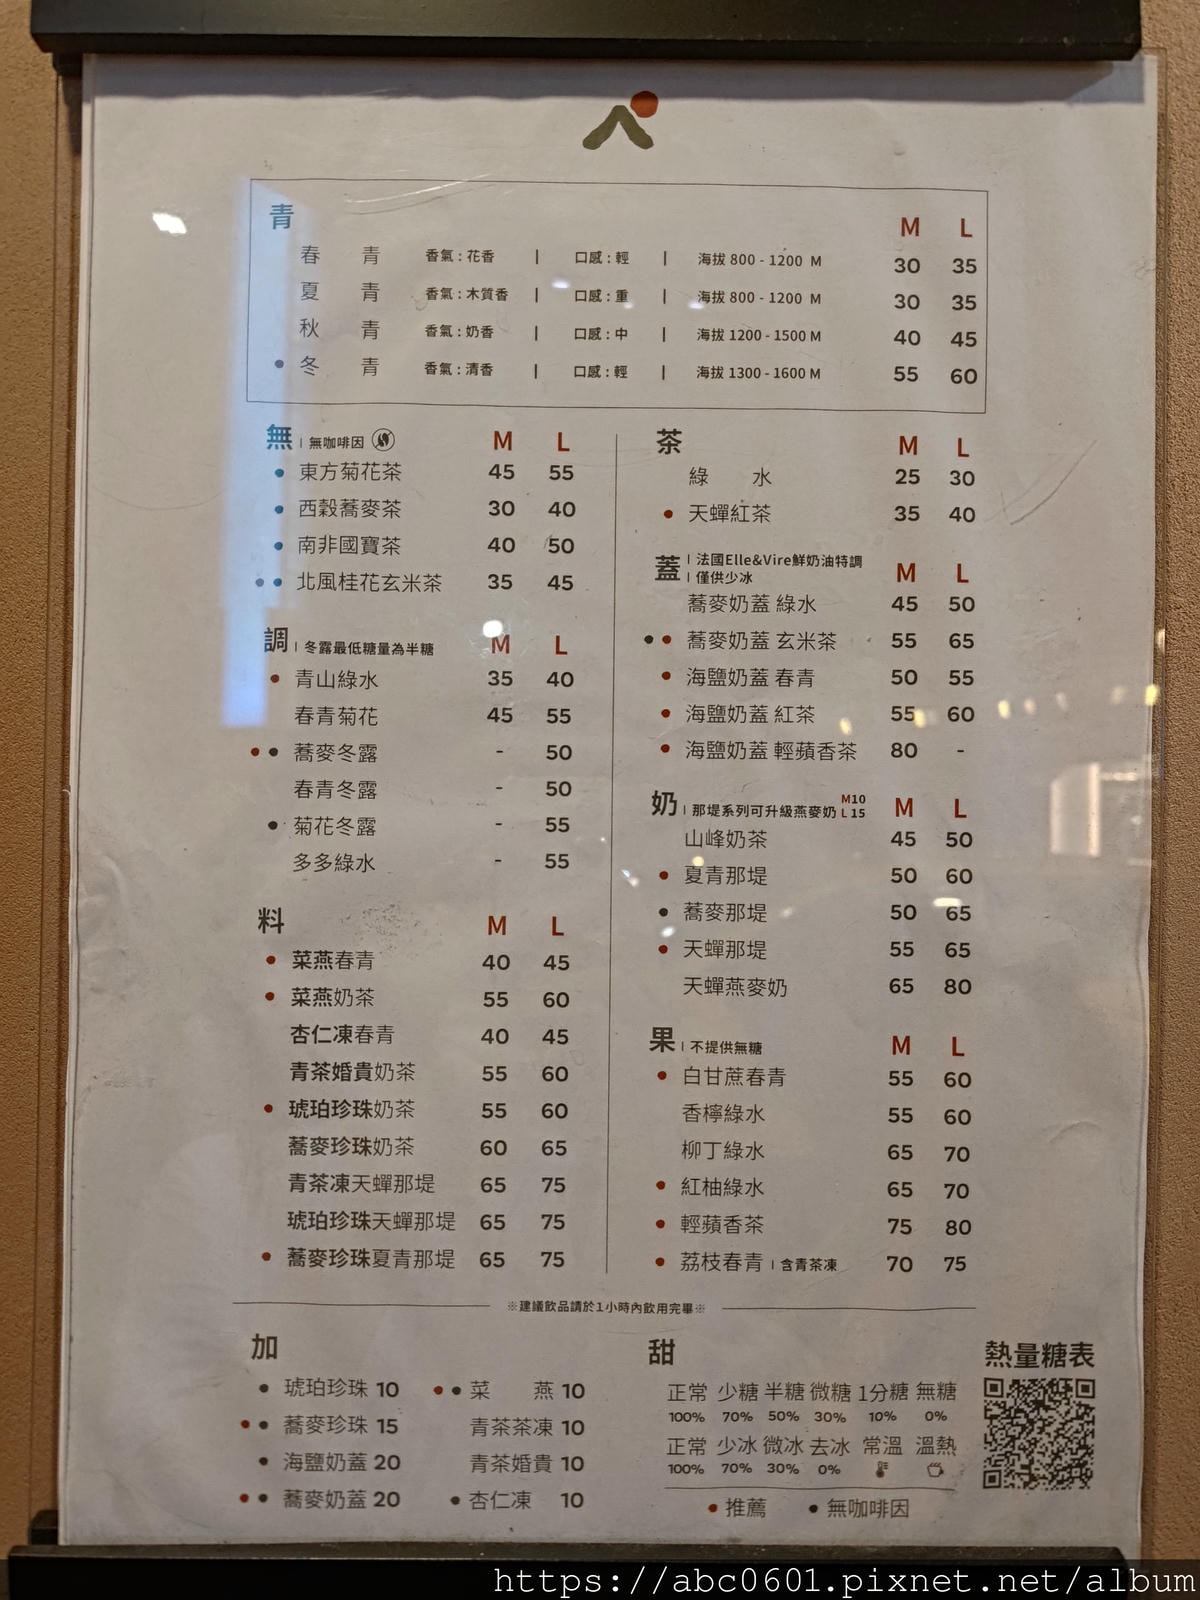 青 M L
春 青 香氣:花香 | 口感:輕 | 海拔 800 - 1200 M 30 35
夏 青 香氣:木質香 | 口感:重 | 海拔 800 - 1200 M 30 35
秋 青 香氣:奶香 | 口感:中 | 海拔 1200 - 1500 M 40 45
• 冬 青 香氣:清香 | 口感:輕 | 海拔 1300 - 1600 M 55 60
無 | 無咖啡因 M L
• 東方菊花茶 45 55
• 西穀蕎麥茶 30 40
• 南非國寶茶 40 50
•• 北風桂花玄米茶 35 45
調 | 冬露最低糖量為半糖 M L
• 青山綠水 35 40
春青菊花 45 55
•• 蕎麥冬露 - 50
春青冬露 - 50
• 菊花冬露 - 55
多多綠水 - 55
料 M L
• 菜燕春青 40 45
• 菜燕奶茶 55 60
杏仁凍春青 40 45
青茶婚貴奶茶 55 60
• 琥珀珍珠奶茶 55 60
蕎麥珍珠奶茶 60 65
青茶凍天蟬那堤 65 75
琥珀珍珠天蟬那堤 65 75
• 蕎麥珍珠夏青那堤 65 75
茶 M L
綠 水 25 30
• 天蟬紅茶 35 40
蓋 | 法國Elle&Vire鮮奶油特調 M L
| 僅供少冰
蕎麥奶蓋 綠水 45 50
•• 蕎麥奶蓋 玄米茶 55 65
• 海鹽奶蓋 春青 50 55
• 海鹽奶蓋 紅茶 55 60
• 海鹽奶蓋 輕蘋香茶 80 -
奶 | 那堤系列可升級燕麥奶 M10 L15 M L
山峰奶茶 45 50
• 夏青那堤 50 60
• 蕎麥那堤 50 65
• 天蟬那堤 55 65
天蟬燕麥奶 65 80
果 | 不提供無糖 M L
• 白甘蔗春青 55 60
香檸綠水 55 60
柳丁綠水 65 70
• 紅柚綠水 65 70
• 輕蘋香茶 75 80
• 荔枝春青 | 含青茶凍 70 75
※建議飲品請於1小時內飲用完畢※
加
• 琥珀珍珠 10
•• 蕎麥珍珠 15
• 海鹽奶蓋 20
•• 蕎麥奶蓋 20
•• 菜 燕 10
青茶茶凍 10
青茶婚貴 10
• 杏仁凍 10
甜
正常 少糖 半糖 微糖 1分糖 無糖
100% 70% 50% 30% 10% 0%
正常 少冰 微冰 去冰 常溫 溫熱
100% 70% 30% 0%
• 推薦 • 無咖啡因
熱量糖表
https://abc0601.pixnet.net/album